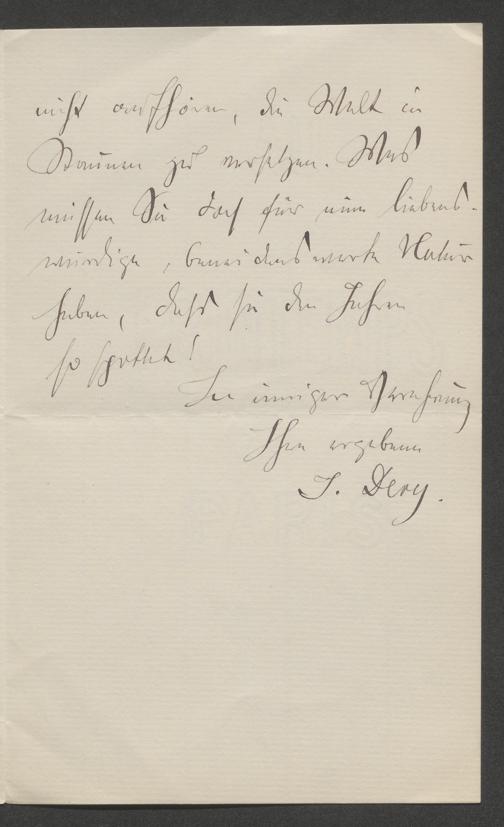 nicht aufhören, die Welt in
Staunen zu versetzen. Was
müssen Sie doch für eine liebens-
würdige, beneidenswerte Natur
haben, dass sie den Jahren
so spottet!
In inniger Verehrung
Ihr ergebener
J. Dery.